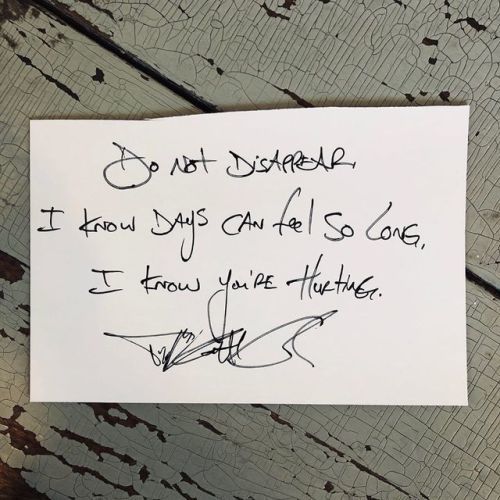 Do Not Disappear,
I know Days can feel so Long,
I know you're Hurting.